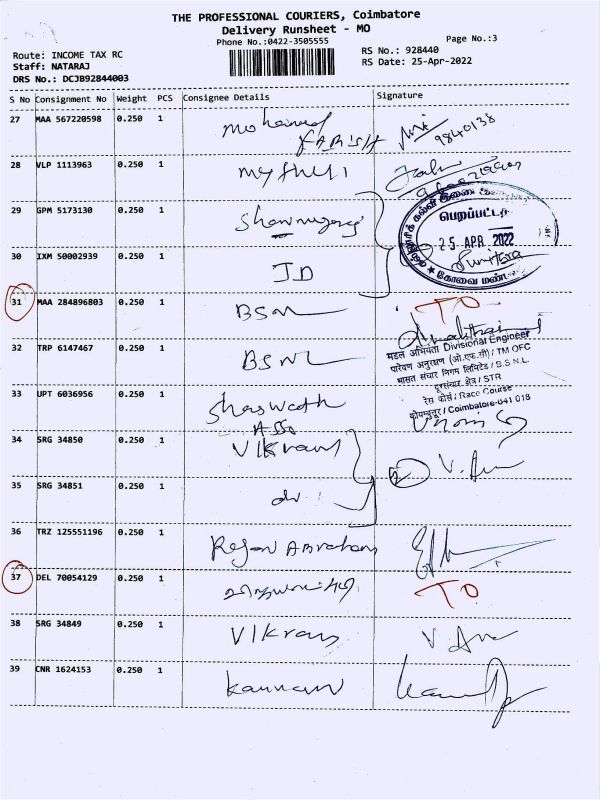 THE PROFESSIONAL COURIERS, Coimbatore
Delivery Runsheet - MO
Phone No.:0422-3505555
Page No.:3
Route: INCOME TAX RC
Staff: NATARAJ
DRS No.: DCJB92844003
RS No.: 928440
RS Date: 25-Apr-2022
S No Consignment No Weight PCS Consignee Details Signature
27 MAA 567220598 0.250 1 Mohamed
9840138
28 VLP 1113963 0.250 1 Mythili
29 GPM 5173130 0.250 1
பெறப்பட்டது
25 APR 2022
கோவை மண்
30 IXM 50002939 0.250 1 JD
Sunitera
31 MAA 284896803 0.250 1 BSNL TO
32 TRP 6147467 0.250 1 BSNL
मंडल अभियंता Divisional Engineer
पारेषण अनुरक्षण (ओ.एफ.सी) / TM OFC
भारत संचार निगम लिमिटेड / B.S.N.L.
दूरसंचार क्षेत्र / STR
रेस कोर्स / Race Course
कोयम्बत्तूर / Coimbatore-641 018
33 UPT 6036956 0.250 1 Shaswath
Asso
34 SRG 34850 0.250 1 Vikram
2 V. Anu
35 SRG 34851 0.250 1 do
36 TRZ 125551196 0.250 1 Rejan Abraham
37 DEL 70054129 0.250 1 TO
38 SRG 34849 0.250 1 Vikram V. Anu
39 CNR 1624153 0.250 1 Kannan